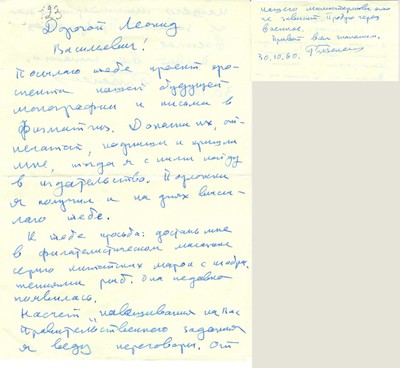 93
Дорогой Леонид
Васильевич!
Посылаю тебе проект про-
спекта нашей будущей
монографии и письма в
Физматгиз. Допиши их, от-
печатай, подпиши и пришли
мне, тогда я с ними пойду
в издательство. Я получил и на днях высы-
лаю тебе.
К тебе просьба: достань мне
в филателистическом магазине
серию китайских марок с изобра-
жениями рыб. Она недавно
появилась.
Насчет "навешивания" на Вас
правительственного задания
я веду переговоры. От
нашего министерства это
не зависит. Пробую через
военное.
Привет всем
30.10.60.